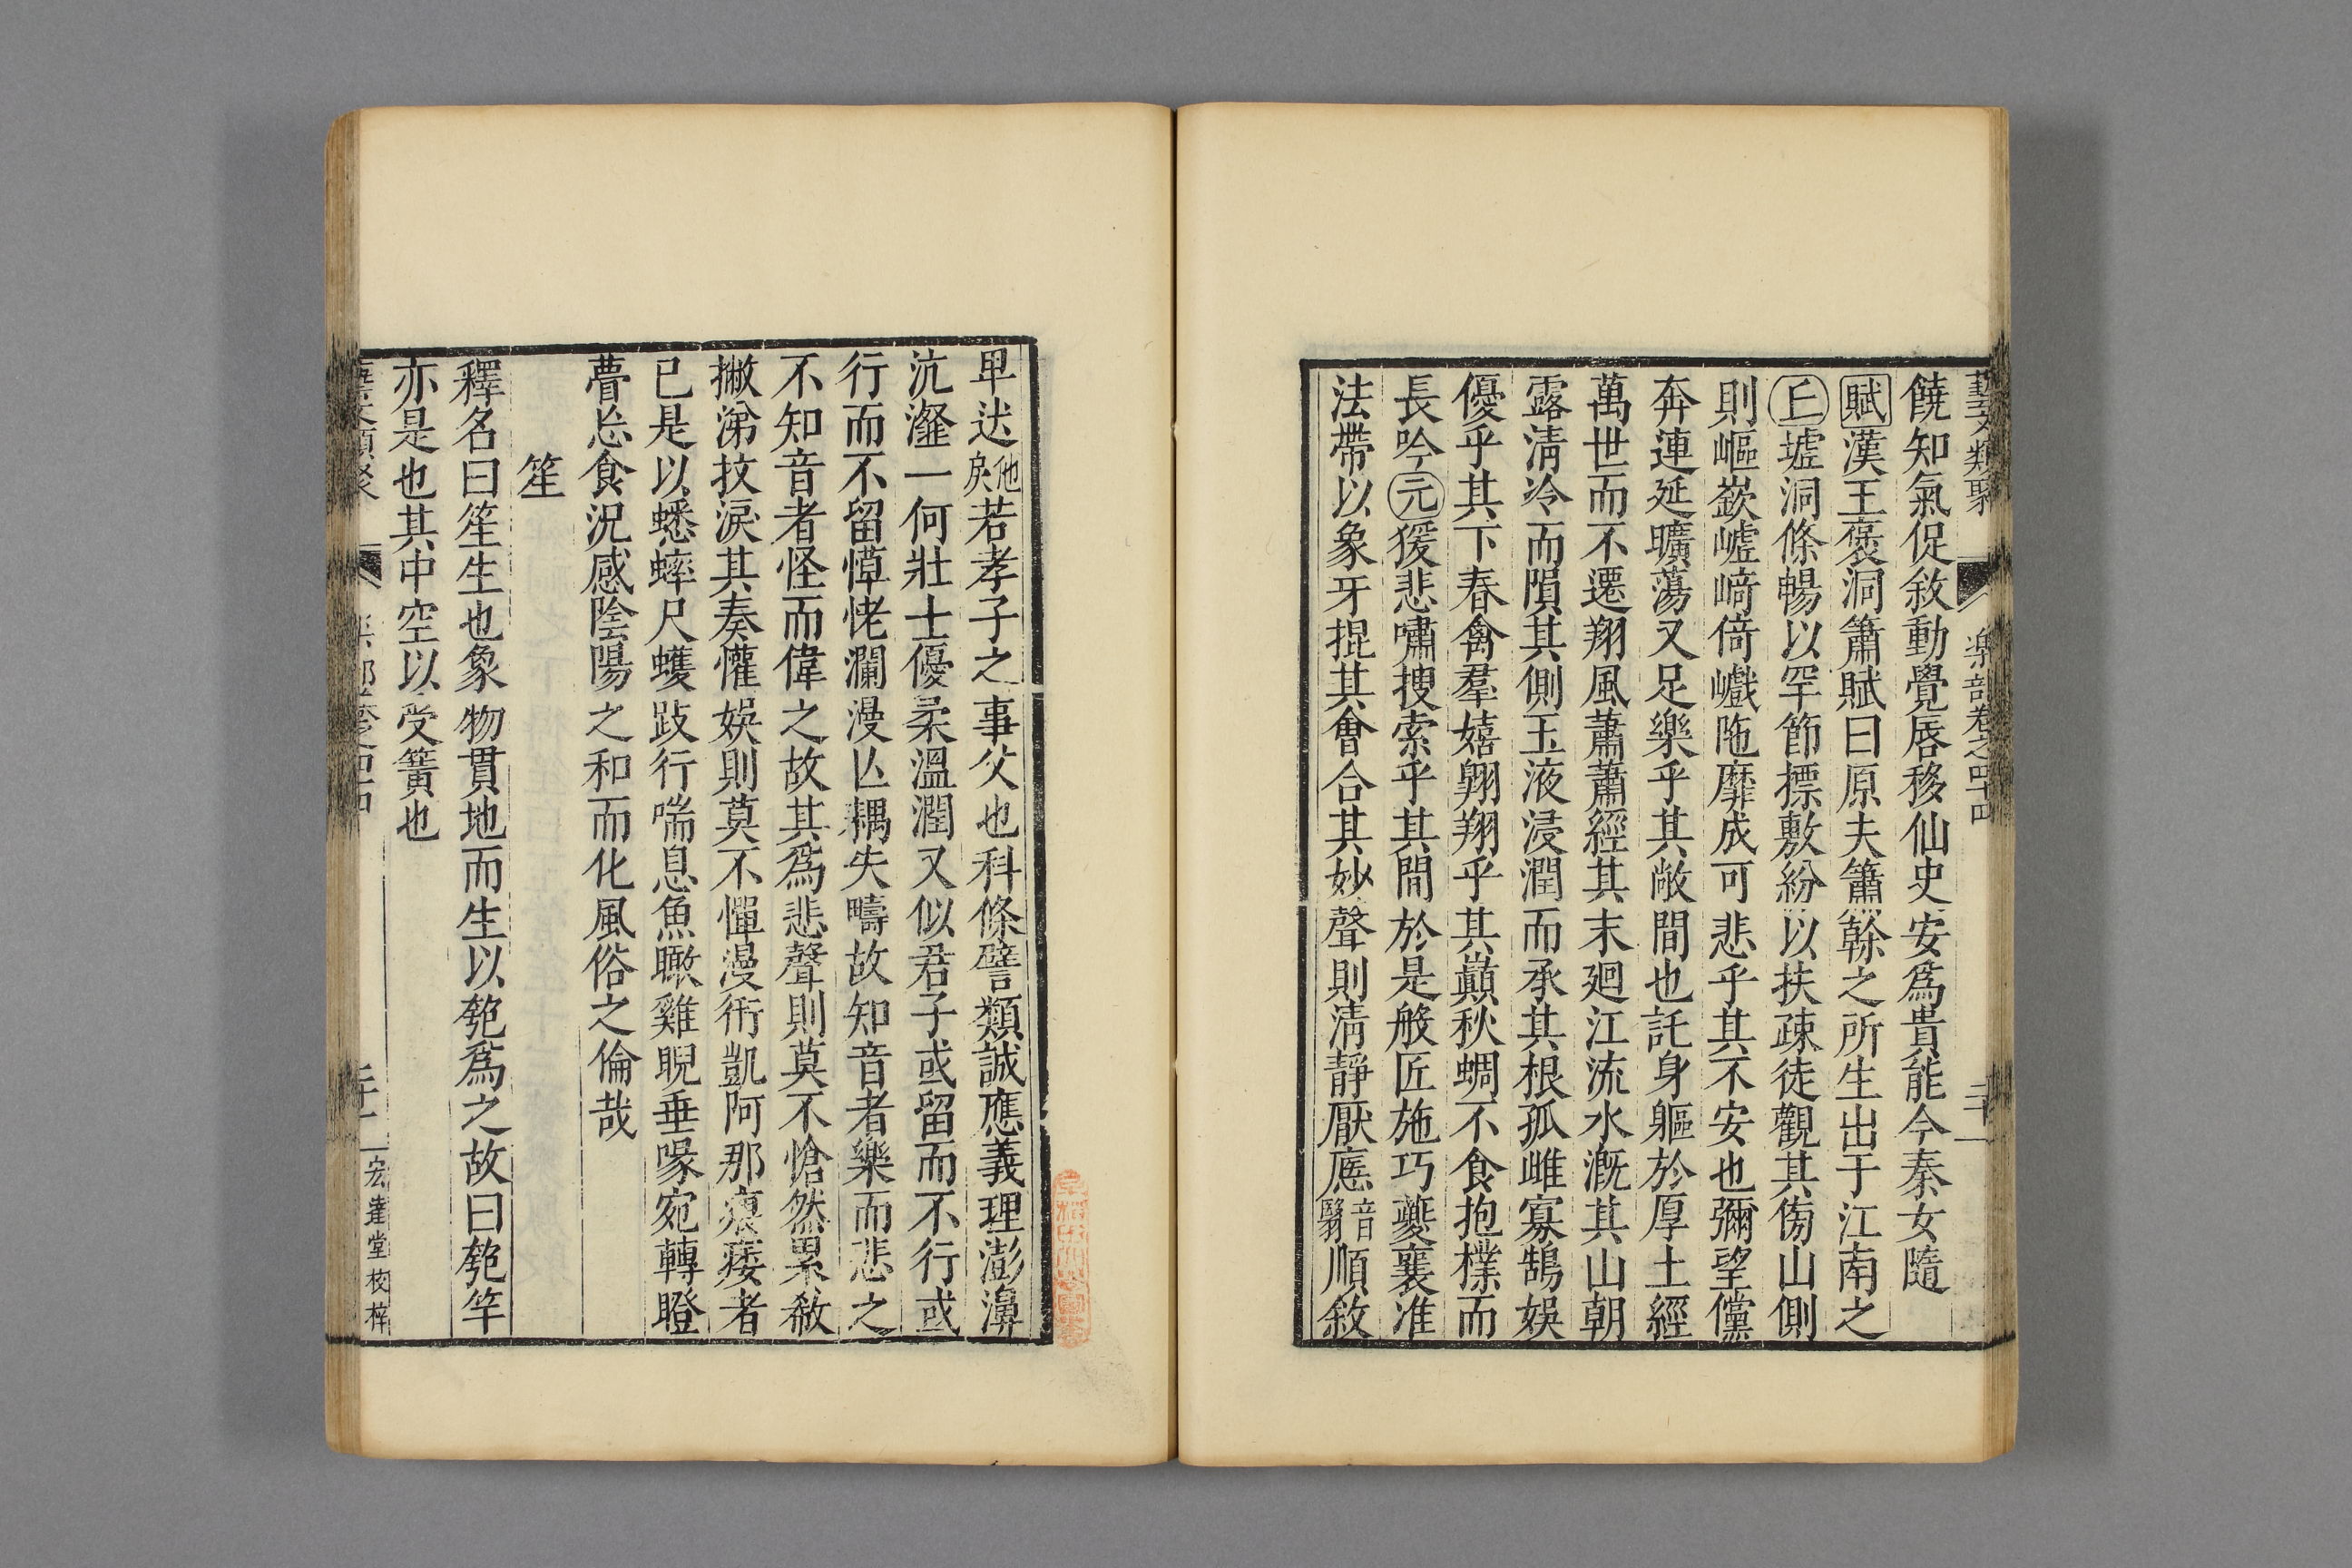 藝文類聚 樂部卷之四十四 二十
饒知氣促敘動覺唇移仙史安爲貴能今秦女隨
賦漢王褒洞簫賦曰原夫簫幹之所生出于江南之
丘墟洞條暢以罕節摽敷紛以扶疎徒觀其傍山側
則嶇嶔嶟崎倚巇陁靡成可悲乎其不安也彌望儻
奔連延曠蕩又足樂乎其敞間也託身軀於厚土經
萬世而不遷翔風蕭蕭經其末廻江流水溉其山朝
露淸冷而隕其側玉液浸潤而承其根孤雌寡鵠娛
優乎其下春禽羣嬉翺翔乎其巔秋蜩不食抱樸而
長吟元猨悲嘯搜索乎其間於是般匠施巧夔襄准
法帶以象牙掍其會合其妙聲則淸靜厭㥷音翳順敘
卑迏他戾若孝子之事父也科條譬類誠應義理澎濞
沆瀣一何壯士優柔溫潤又似君子或留而不行或
行而不留愺恅瀾漫亾耦失疇故知音者樂而悲之
不知音者怪而偉之故其爲悲聲則莫不愴然累欷
撇涕抆淚其奏懽娛則莫不憚漫衎凱阿那㾯痿者
已是以蟋蟀尺蠖跂行喘息魚瞰雞睨垂喙宛轉瞪
瞢忘食況感陰陽之和而化風俗之倫哉
笙
釋名曰笙生也象物貫地而生以匏爲之故曰匏竽
亦是也其中空以受簧也
藝文類聚 樂部卷之四十四 二十一 宏達堂校梓